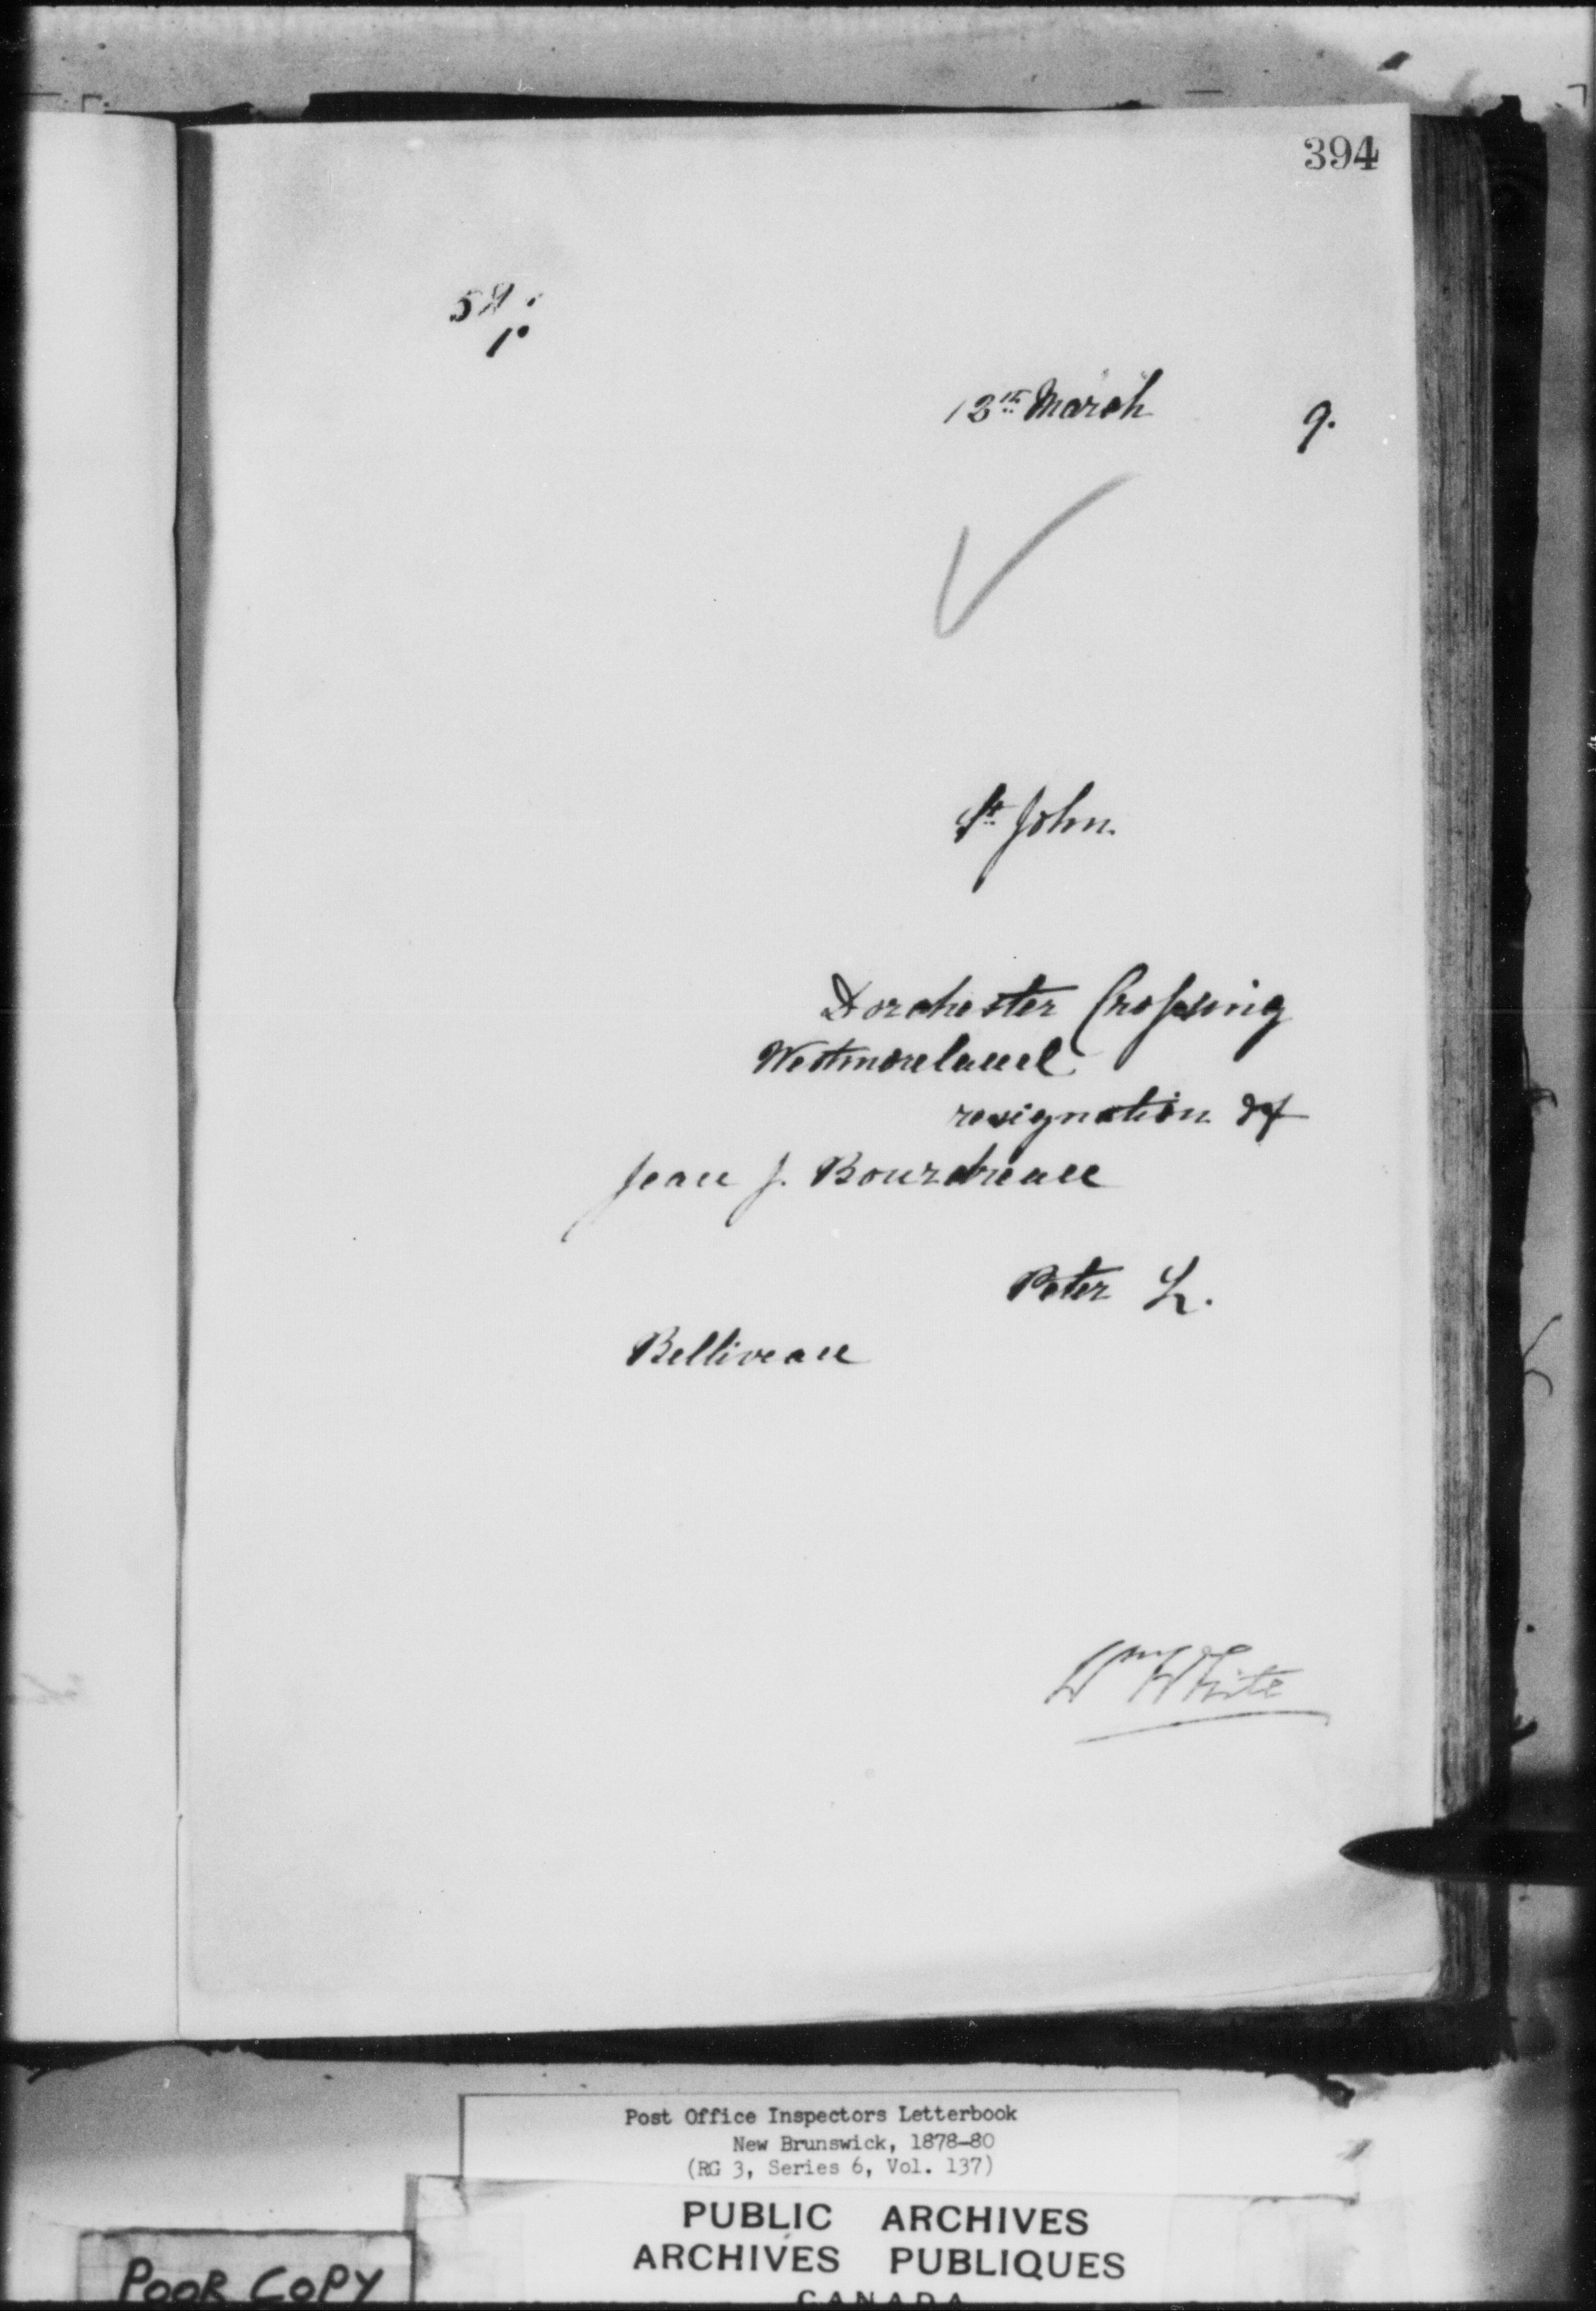 394
13th March 9.
St John.
Dorchester Crossing
Westmoreland
resignation of
Jean J. Bourdreau
Peter L.
Belliveau
Wm White
Post Office Inspectors Letterbook
New Brunswick, 1878-80
(RG 3, Series 6, Vol. 137)
PUBLIC ARCHIVES
ARCHIVES PUBLIQUES
CANADA
POOR COPY